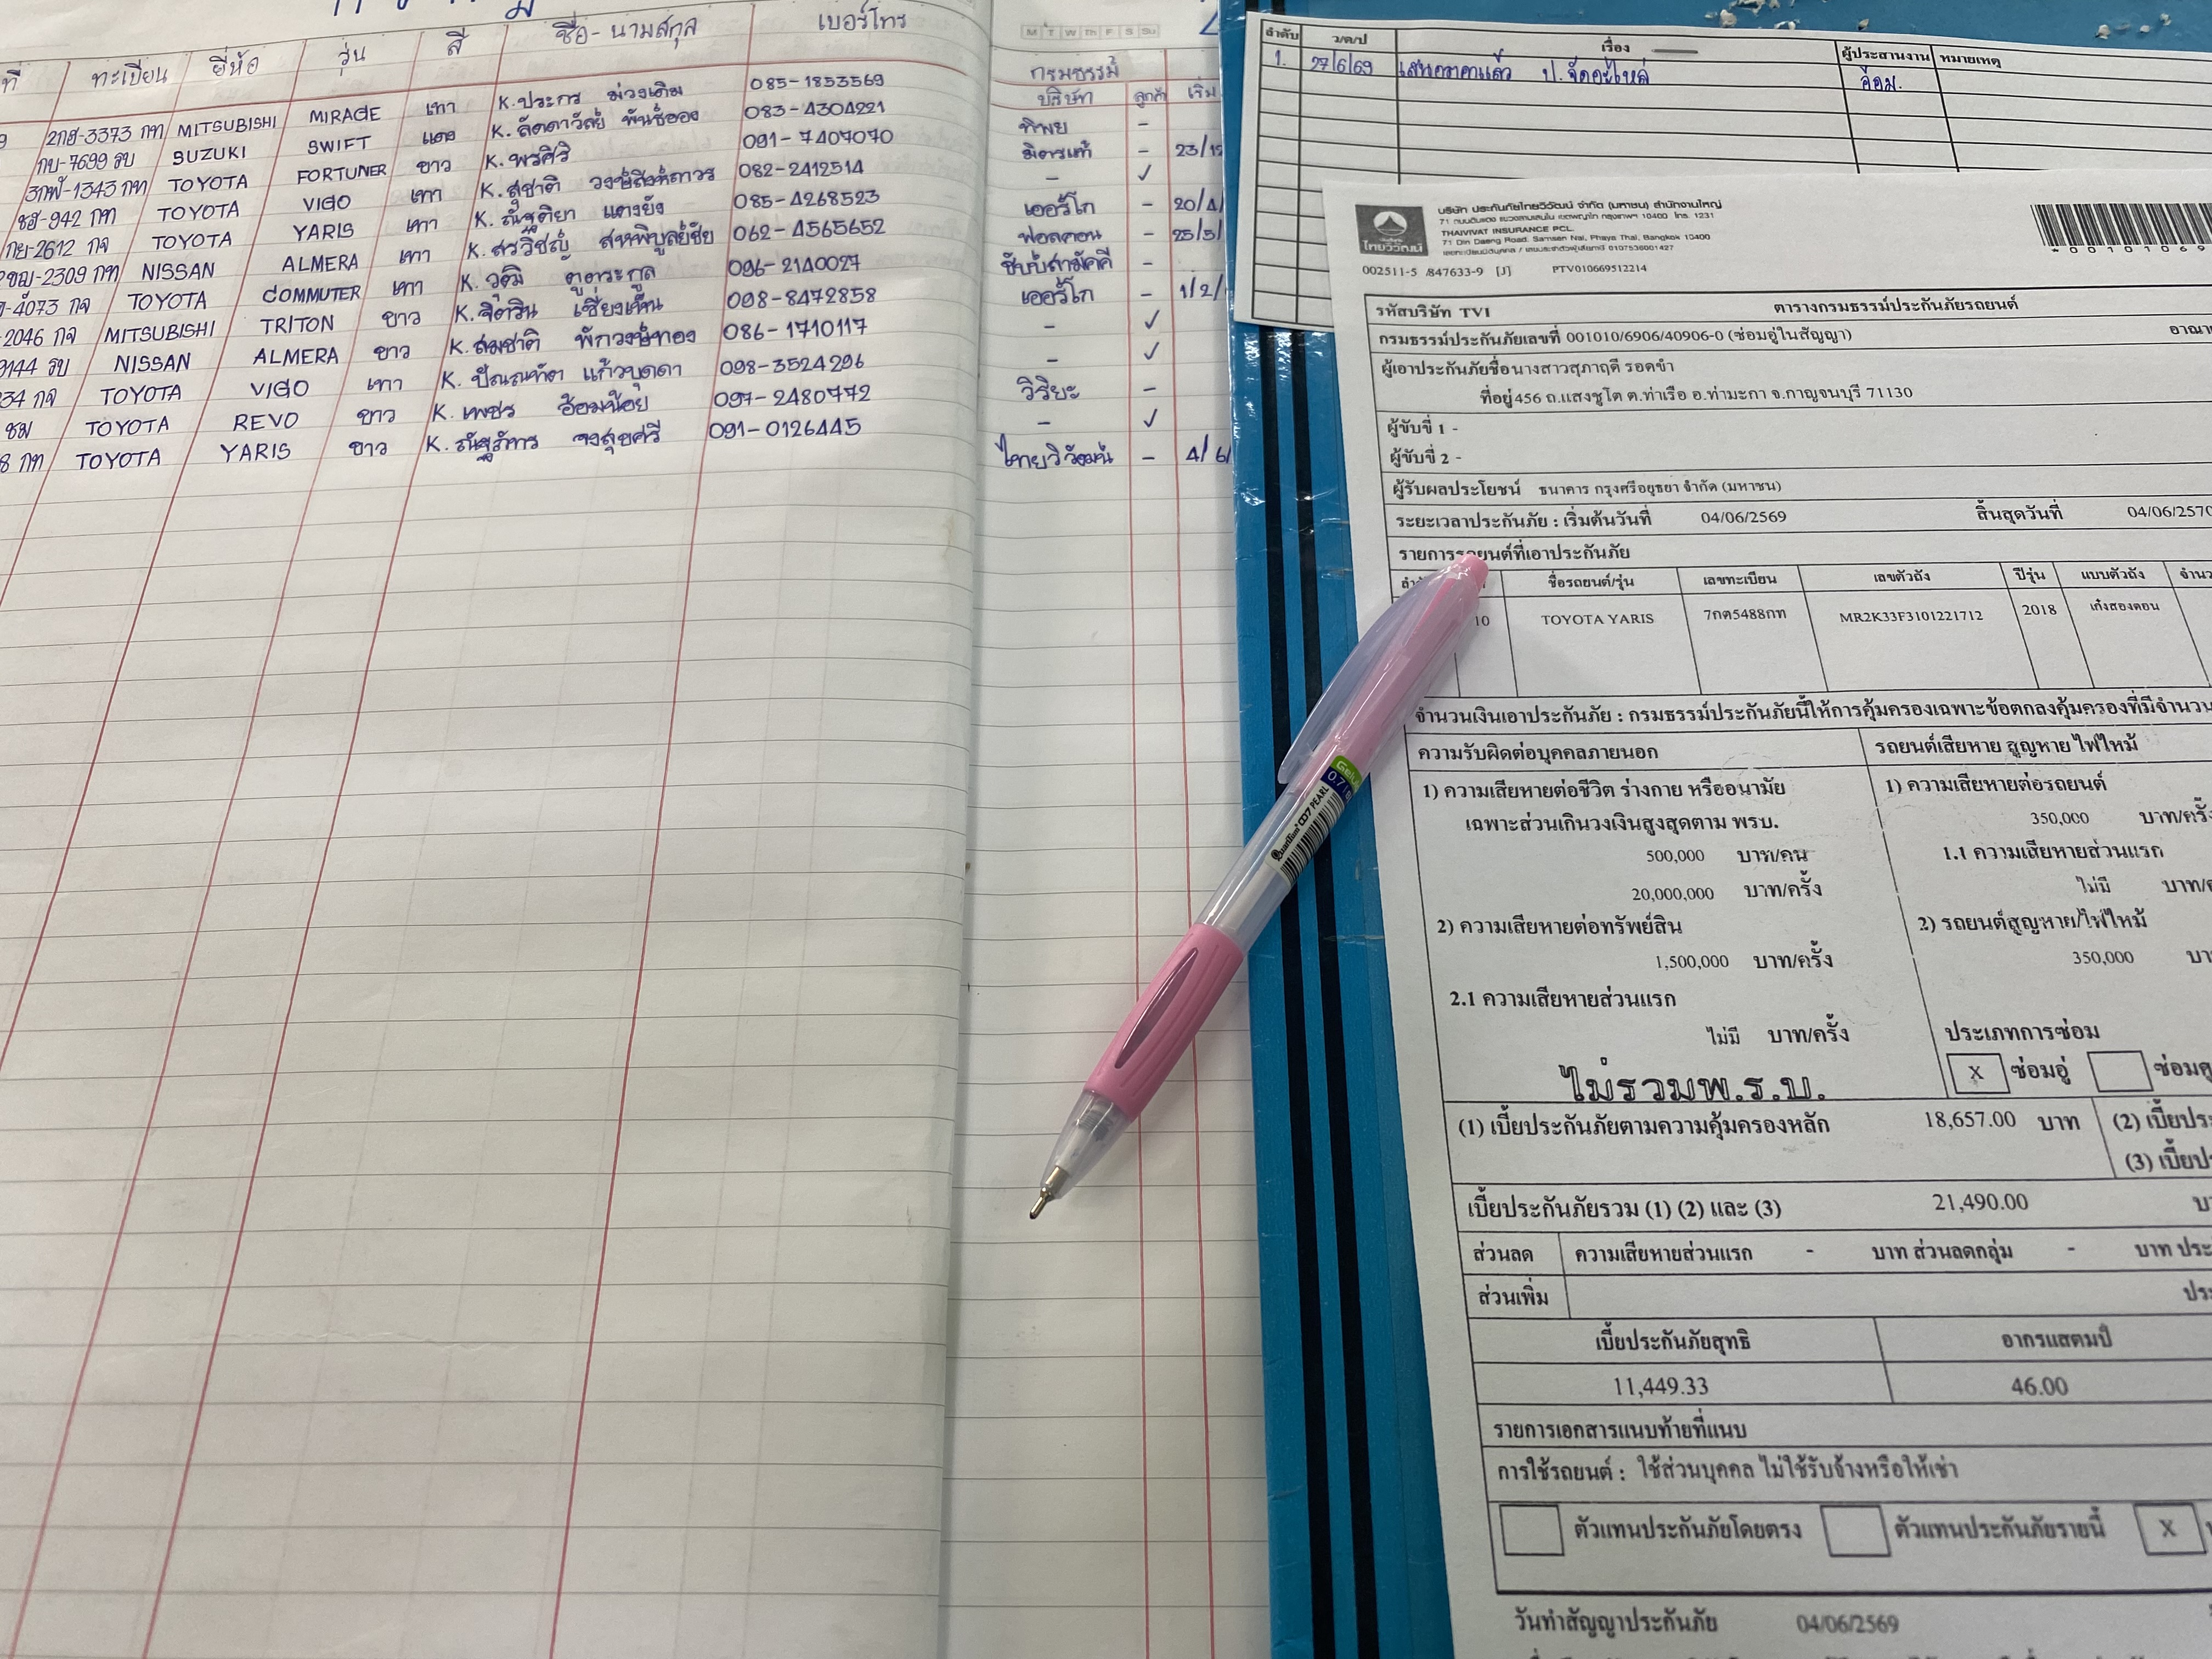 ที่ ทะเบียน ยี่ห้อ รุ่น สี ชื่อ-นามสกุล เบอร์โทร
2กฮ-3373 กท MITSUBISHI MIRAGE เทา K.ประกร ม่วงเดิม 085-1853569
กบ-7699 SUZUKI SWIFT แดง K.ลัดดาวัลย์ 083-4304221
3กฬ-1343 กท TOYOTA FORTUNER ขาว K.พรศิริ 091-7407070
ชฮ-942 กท TOYOTA VIGO เทา K.สุชาติ 082-2412514
กย-2612 กจ TOYOTA YARIS เทา K.ณัฐติยา แดงยัง 085-4268523
-2309 กท NISSAN ALMERA เทา K.สรวิชญ์ สหพิบูลย์ชัย 062-4565652
-4073 กจ TOYOTA COMMUTER เทา K.วุฒิ ตูตระกูล 096-2140027
-2046 กจ MITSUBISHI TRITON ขาว K.จิตวิน เซี่ยงเห็น 098-8472858
9144 NISSAN ALMERA ขาว K.สมชาติ พักวงษ์ทอง 086-1710117
34 กจ TOYOTA VIGO เทา K. ปัณณทัต แก้วบุดดา 098-3524296
ชม TOYOTA REVO ขาว K. เพชร อ้อมน้อย 097-2480772
8 กท TOYOTA YARIS ขาว K. ณัฐภัทร จงสุขศรี 091-0126445
M T W Th F S Su
กรมธรรม์
บริษัท ลูกค้า เริ่ม
ทิพย -
มิตรแท้ - 23/12
- ✓
เออร์โก - 20/4/
ฟอลคอน - 25/5/
-
เออร์โก - 1/2/
- ✓
- ✓
วิริยะ -
- ✓
ไทยวิวัฒน์ - 4/6/
ลำดับ ว/ด/ป เรื่อง ผู้ประสานงาน หมายเหตุ
1. 27/6/69 เสนอราคาแล้ว ป.จัดอะไหล่ อ้อม.
ไทยวิวัฒน์
บริษัท ประกันภัยไทยวิวัฒน์ จำกัด (มหาชน) สำนักงานใหญ่
71 ถนนดินแดง แขวงสามเสนใน เขตพญาไท กรุงเทพฯ 10400 โทร. 1231
THAIVIVAT INSURANCE PCL.
71 Din Daeng Road, Samsen Nai, Phaya Thai, Bangkok 10400
เลขทะเบียนนิติบุคคล / เลขประจำตัวผู้เสียภาษี 0107536001427
*00101069
002511-5 /847633-9 [J] PTV010669512214
รหัสบริษัท TVI ตารางกรมธรรม์ประกันภัยรถยนต์
กรมธรรม์ประกันภัยเลขที่ 001010/6906/40906-0 (ซ่อมอู่ในสัญญา) อาณา
ผู้เอาประกันภัยชื่อ นางสาวสุภาฤดี รอดขำ
ที่อยู่ 456 ถ.แสงชูโต ต.ท่าเรือ อ.ท่ามะกา จ.กาญจนบุรี 71130
ผู้ขับขี่ 1 -
ผู้ขับขี่ 2 -
ผู้รับผลประโยชน์ ธนาคาร กรุงศรีอยุธยา จำกัด (มหาชน)
ระยะเวลาประกันภัย : เริ่มต้นวันที่ 04/06/2569 สิ้นสุดวันที่ 04/06/2570
รายการรถยนต์ที่เอาประกันภัย
ชื่อรถยนต์/รุ่น เลขทะเบียน เลขตัวถัง ปีรุ่น แบบตัวถัง จำนว
10 TOYOTA YARIS 7กต5488กท MR2K33F3101221712 2018 เก๋งสองตอน
จำนวนเงินเอาประกันภัย : กรมธรรม์ประกันภัยนี้ให้การคุ้มครองเฉพาะข้อตกลงคุ้มครองที่มีจำนวน
ความรับผิดต่อบุคคลภายนอก รถยนต์เสียหาย สูญหาย ไฟไหม้
1) ความเสียหายต่อชีวิต ร่างกาย หรืออนามัย 1) ความเสียหายต่อรถยนต์
เฉพาะส่วนเกินวงเงินสูงสุดตาม พรบ. 350,000 บาท/ครั้ง
500,000 บาท/คน 1.1 ความเสียหายส่วนแรก
20,000,000 บาท/ครั้ง ไม่มี บาท/
2) ความเสียหายต่อทรัพย์สิน 2) รถยนต์สูญหาย/ไฟไหม้
1,500,000 บาท/ครั้ง 350,000 บา
2.1 ความเสียหายส่วนแรก
ไม่มี บาท/ครั้ง ประเภทการซ่อม
ไม่รวมพ.ร.บ. X ซ่อมอู่ ซ่อม
(1) เบี้ยประกันภัยตามความคุ้มครองหลัก 18,657.00 บาท (2) เบี้ยประ
(3) เบี้ยประ
เบี้ยประกันภัยรวม (1) (2) และ (3) 21,490.00 บ
ส่วนลด ความเสียหายส่วนแรก - บาท ส่วนลดกลุ่ม - บาท ประ
ส่วนเพิ่ม ประ
เบี้ยประกันภัยสุทธิ อากรแสตมป์
11,449.33 46.00
รายการเอกสารแนบท้ายที่แนบ
การใช้รถยนต์ : ใช้ส่วนบุคคล ไม่ใช้รับจ้างหรือให้เช่า
ตัวแทนประกันภัยโดยตรง ตัวแทนประกันภัยรายนี้ X
วันทำสัญญาประกันภัย 04/06/2569
Quantum 007 PEARL
0.7